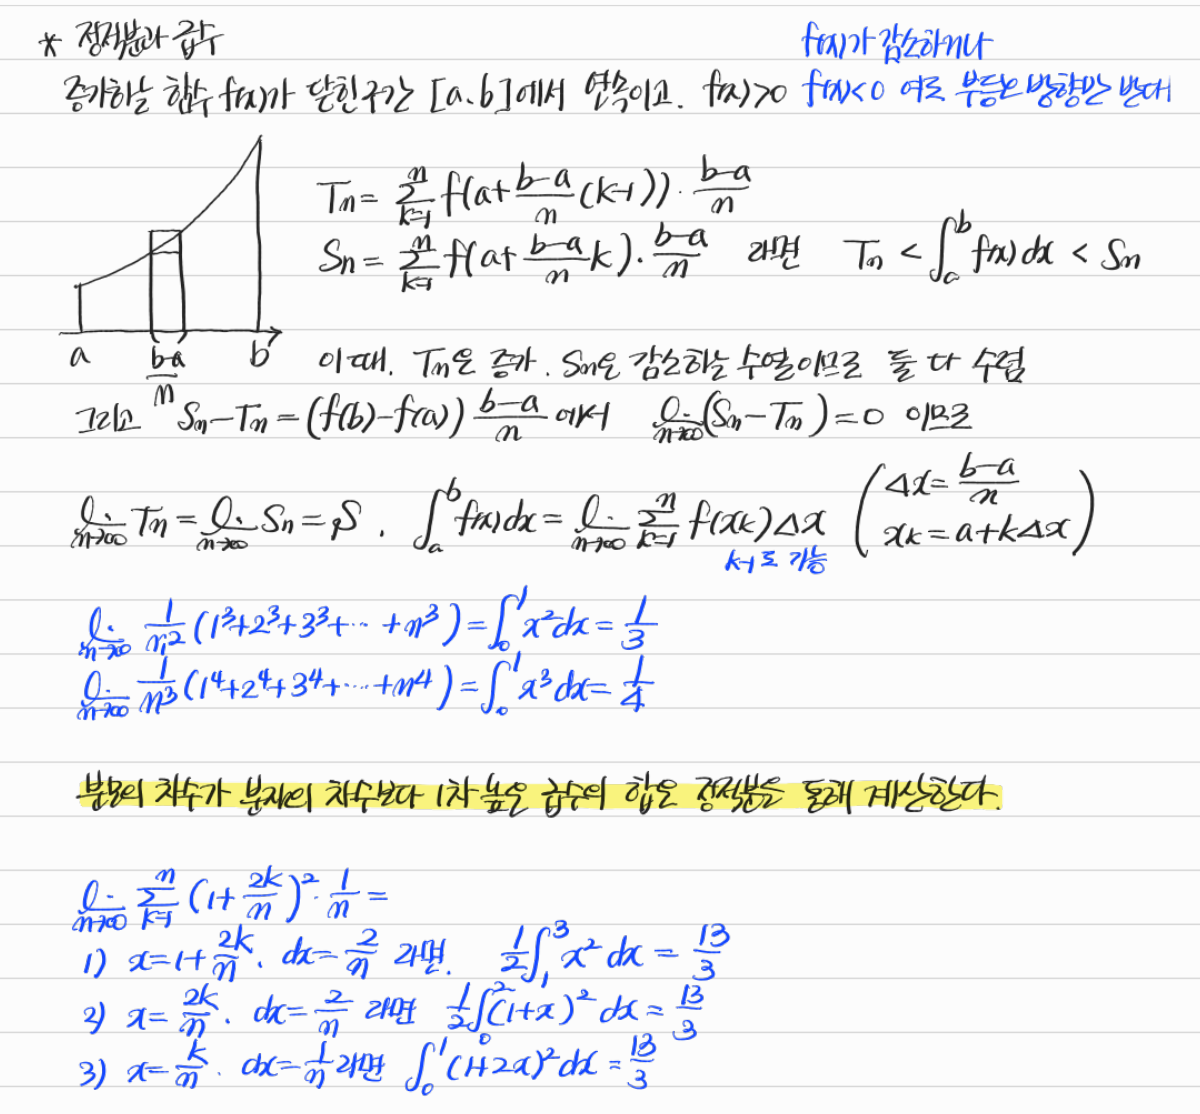 * 정적분과 급수
f(x)가 감소하거나
증가하는 함수 f(x)가 닫힌구간 [a,b]에서 연속이고, f(x)>0 f(x)<0 여도 부등호 방향만 반대
Tn = Σ_{k=1}^{n} f(a+\frac{b-a}{n}(k-1))·\frac{b-a}{n}
Sn = Σ_{k=1}^{n} f(a+\frac{b-a}{n}k)·\frac{b-a}{n} 라면 Tn < ∫_a^b f(x)dx < Sn
a \frac{b-a}{n} b 이때, Tn은 증가, Sn은 감소하는 수열이므로 둘 다 수렴
그리고 Sn-Tn = (f(b)-f(a)) \frac{b-a}{n} 에서 lim_{n→∞}(Sn-Tn)=0 이므로
lim_{n→∞} Tn = lim_{n→∞} Sn = S, ∫_a^b f(x)dx = lim_{n→∞} Σ_{k=1}^{n} f(xk)Δx (Δx=\frac{b-a}{n} xk=a+kΔx)
k-1도 가능
lim_{n→∞} \frac{1}{n^2}(1^3+2^3+3^3+⋯+n^3)=∫_0^1 x^2dx=\frac{1}{3}
lim_{n→∞} \frac{1}{n^3}(1^4+2^4+3^4+⋯+n^4)=∫_0^1 x^3dx=\frac{1}{4}
분모의 차수가 분자의 차수보다 1차 높은 급수의 합은 정적분을 통해 계산한다.
lim_{n→∞} Σ_{k=1}^{n} (1+\frac{2k}{n})^2·\frac{1}{n} =
1) x=1+\frac{2k}{n}, dx=\frac{2}{n} 라면, \frac{1}{2}∫_1^3 x^2 dx = \frac{13}{3}
2) x=\frac{2k}{n}, dx=\frac{2}{n} 라면 \frac{1}{2}∫_0^2 (1+x)^2 dx = \frac{13}{3}
3) x=\frac{k}{n}, dx=\frac{1}{n} 라면 ∫_0^1 (1+2x)^2 dx = \frac{13}{3}